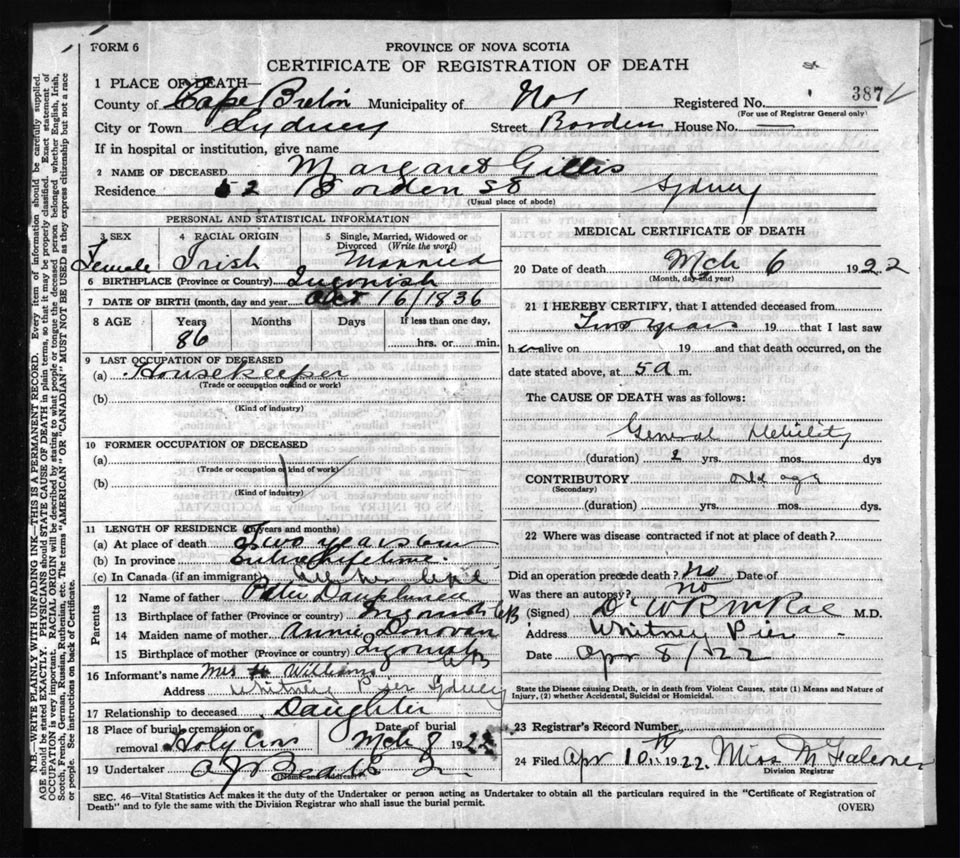 FORM 6
PROVINCE OF NOVA SCOTIA
CERTIFICATE OF REGISTRATION OF DEATH
387
1 PLACE OF DEATH—
County of Cape Breton Municipality of Registered No.
(For use of Registrar General only)
City or Town Sydney Street Borden House No.
If in hospital or institution, give name
2 NAME OF DECEASED Margaret Gillis
Residence 52 Borden St Sydney
(Usual place of abode)
PERSONAL AND STATISTICAL INFORMATION
3 SEX 4 RACIAL ORIGIN 5 Single, Married, Widowed or Divorced (Write the word)
Female Irish Married
6 BIRTHPLACE (Province or Country) Ingonish
7 DATE OF BIRTH (month, day and year) Oct 16/1836
8 AGE Years Months Days If less than one day,
86 hrs. or min.
9 LAST OCCUPATION OF DECEASED
(a) Housekeeper
(Trade or occupation or kind or work)
(b)
(Kind of industry)
10 FORMER OCCUPATION OF DECEASED
(a)
(Trade or occupation or kind of work)
(b)
(Kind of industry)
11 LENGTH OF RESIDENCE (in years and months)
(a) At place of death Two years
(b) In province Entire lifetime
(c) In Canada (if an immigrant)
Parents
12 Name of father Peter Dauphinee
13 Birthplace of father (Province or country) Ingonish CB
14 Maiden name of mother Annie Donovan
15 Birthplace of mother (Province or country) Ingonish CB
16 Informant's name Mrs Williams
Address Whitney Pier Sydney
17 Relationship to deceased Daughter
18 Place of burial, cremation or removal Holy Cross Date of burial Mch 8 1922
19 Undertaker
(Name and address)
MEDICAL CERTIFICATE OF DEATH
20 Date of death Mch 6 1922
(Month, day and year)
21 I HEREBY CERTIFY, that I attended deceased from
Two years 19 that I last saw
h er alive on 19 and that death occurred, on the
date stated above, at 5 a m.
The CAUSE OF DEATH was as follows:
General Debility
(duration) 2 yrs. mos. dys
CONTRIBUTORY old age
(Secondary)
(duration) yrs. mos. dys.
22 Where was disease contracted if not at place of death?
Did an operation precede death? no Date of
Was there an autopsy? no
(Signed) Dr W R McRae M.D.
Address Whitney Pier
Date Apr 8/22
State the Disease causing Death, or in death from Violent Causes, state (1) Means and Nature of Injury, (2) whether Accidental, Suicidal or Homicidal.
23 Registrar's Record Number
24 Filed Apr 10th 1922. Miss M Falconer
Division Registrar
SEC. 46—Vital Statistics Act makes it the duty of the Undertaker or person acting as Undertaker to obtain all the particulars required in the "Certificate of Registration of
Death" and to fyle the same with the Division Registrar who shall issue the burial permit. (OVER)
N.B.—WRITE PLAINLY WITH UNFADING INK—THIS IS A PERMANENT RECORD. Every item of information should be carefully supplied.
AGE should be stated EXACTLY. PHYSICIANS should STATE CAUSE OF DEATH in plain terms, so that it may be properly classified. Exact statement of
OCCUPATION is very important. RACIAL ORIGIN will be described by stating to what people or tongue the deceased person belonged whether English, Irish,
Scotch, French, German, Russian, Ruthenian, etc. The terms "AMERICAN" OR "CANADIAN" MUST NOT BE USED as they express citizenship but not a race
or people. See instructions on back of Certificate.